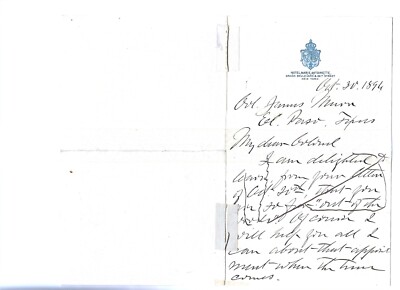 HOTEL MARIE ANTOINETTE
NEW YORK
Oct. 30. 1896
Col. James
El Paso, Texas
My dear Colonel
I am delighted to
learn from your letter
of Oct 20th, that you
are so far "out of the
woods". Of course I
will help you all I
can about that appoint
ment when the time
comes.